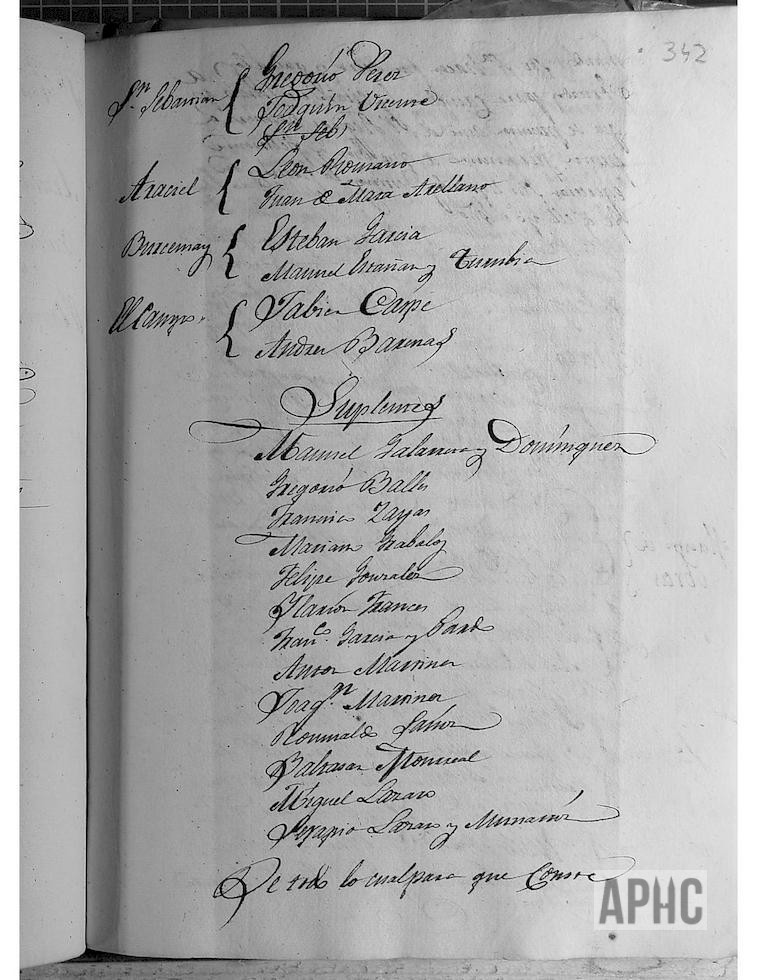 342
Sn. Sebastian { Gregorio Perez
Joaquin Vicente
Sn. Seb
Araciel { Leon Romano
Juan de Mata Arellano
Burcemay { Esteban Garcia
Manuel Estañan y
El Campo { Fabian Carpi
Andres Barenas
Suplentes
Manuel Galarreta y Dominguez
Gregorio Balles
Francisco Zayas
Mariano
Felipe Gonzalez
Ylarion Frances
Franco. Garcia y Pardo
Anton Martinez
Joaqn. Martinez
Romualdo
Baltasar Monreal
Miguel Lazaro
Serapio Lazaro y
De todo lo cual para que Conste
APHC